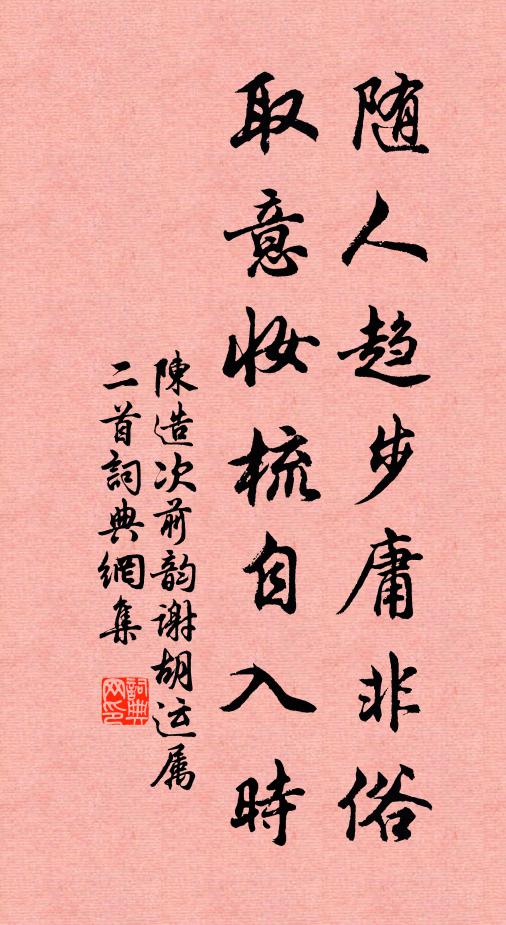 随人趋步庸非俗
取意妆梳自入時
陳造次前韵谢胡运属
二首詞典網集
詞典網印